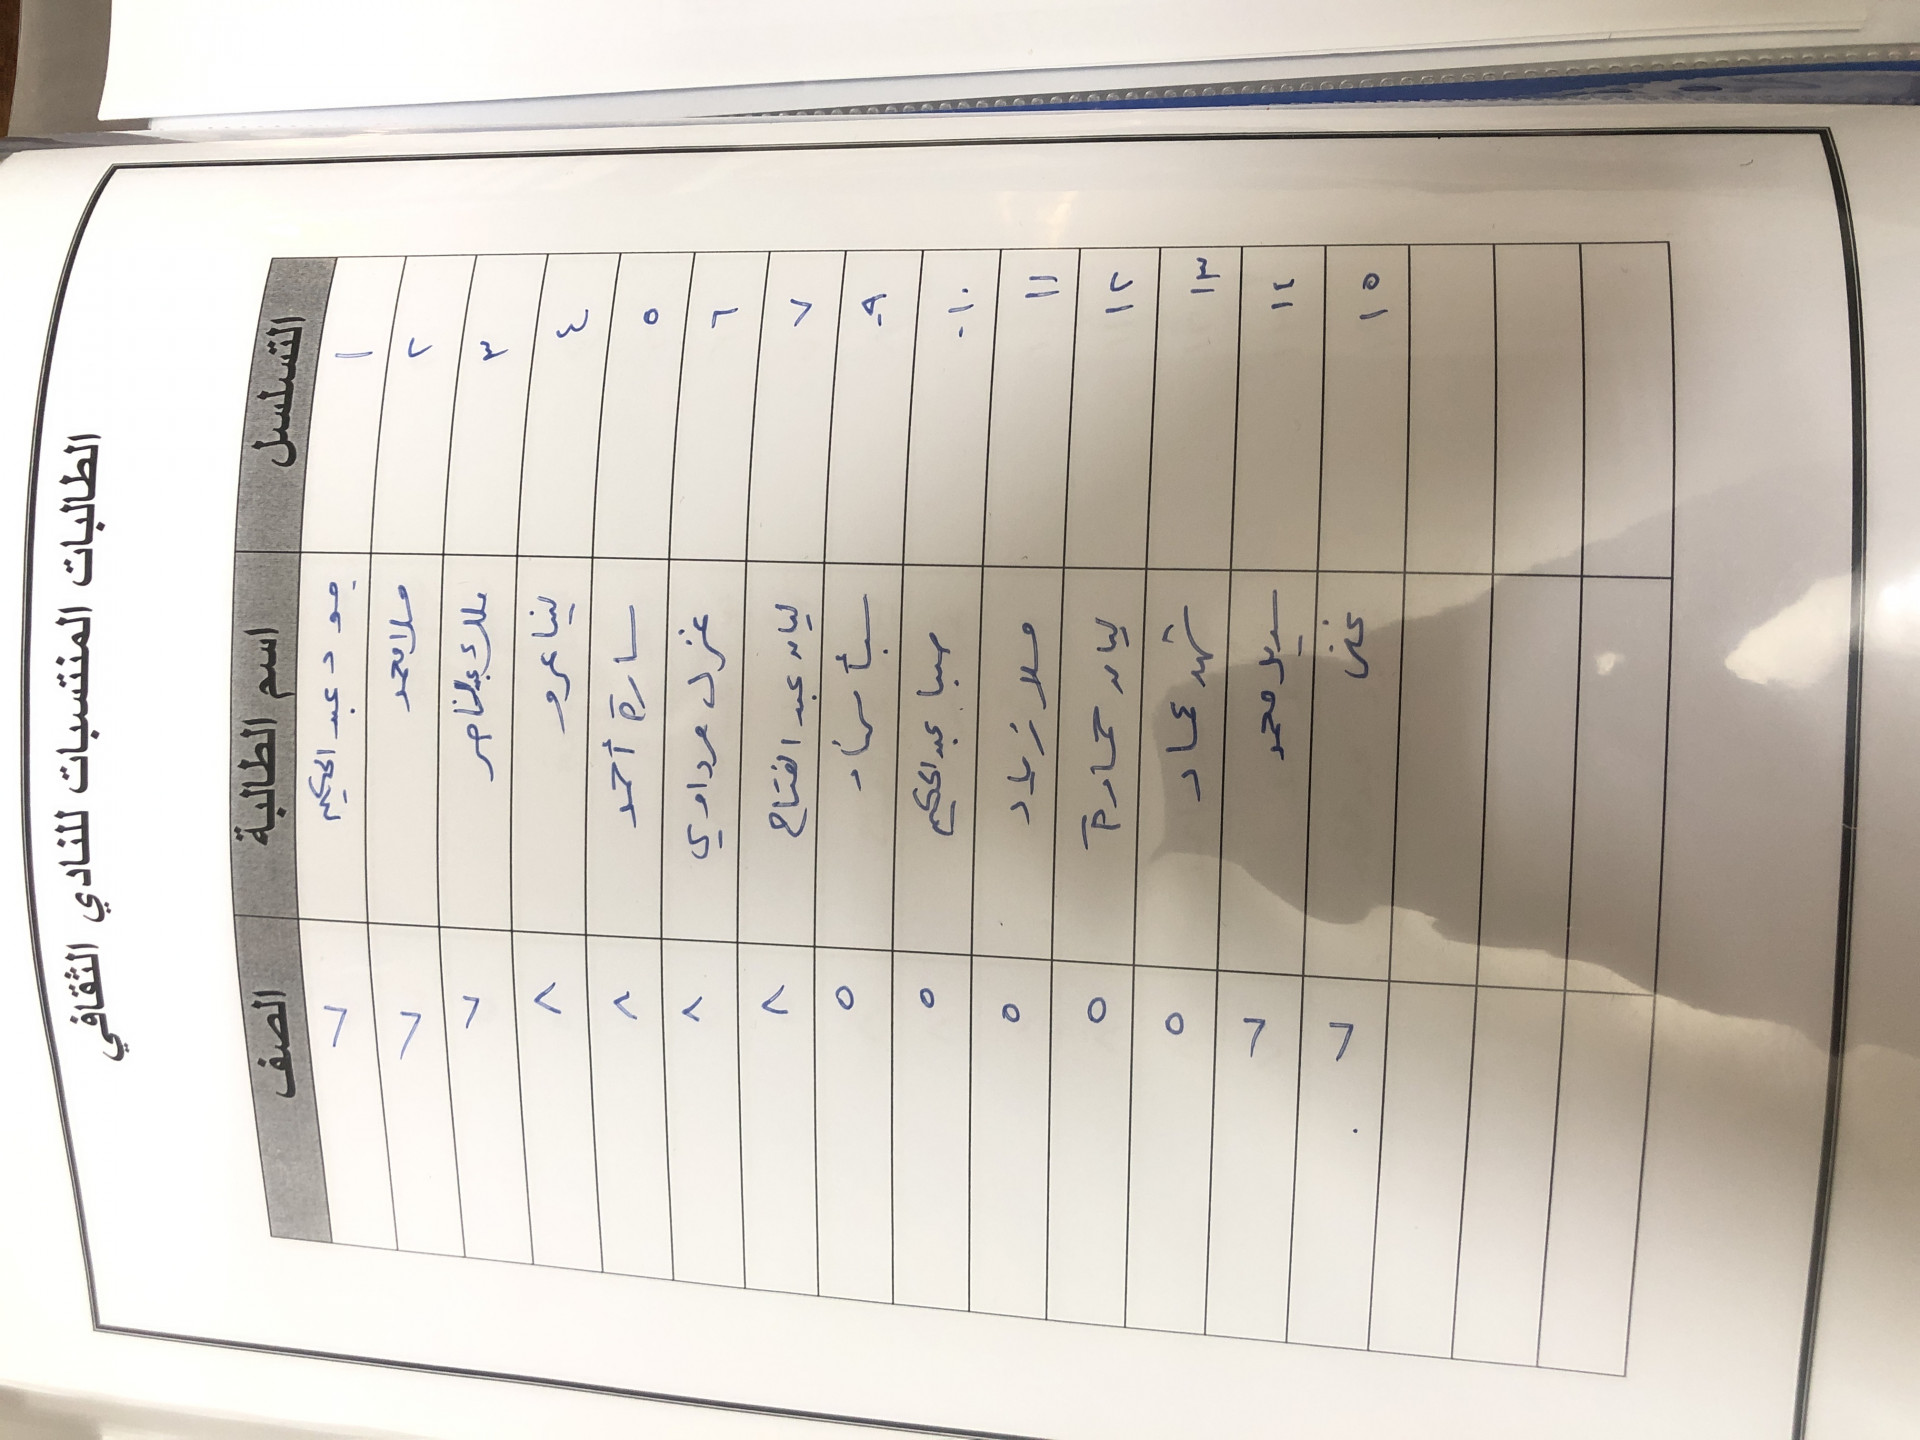 الطالبات المنتسبات للنادي الثقافي
التسلسل اسم الطالبة الصف
١ جود عبد الحكيم ٦
٢ ملا محمد ٦
٣ ملاك عبدالناصر ٦
٤ لينا عمرو ٨
٥ سارة أحمد ٨
٦ غزل مرداوي ٨
٧ ليان عبد الفتاح ٨
٩- سبأ ٥
١٠- صبا عبد الحكيم ٥
١١ ملا زياد ٥
١٢ ليان حمادة ٥
١٣ شهد عماد ٥
١٤ سيدل محمد ٦
١٥ ٦